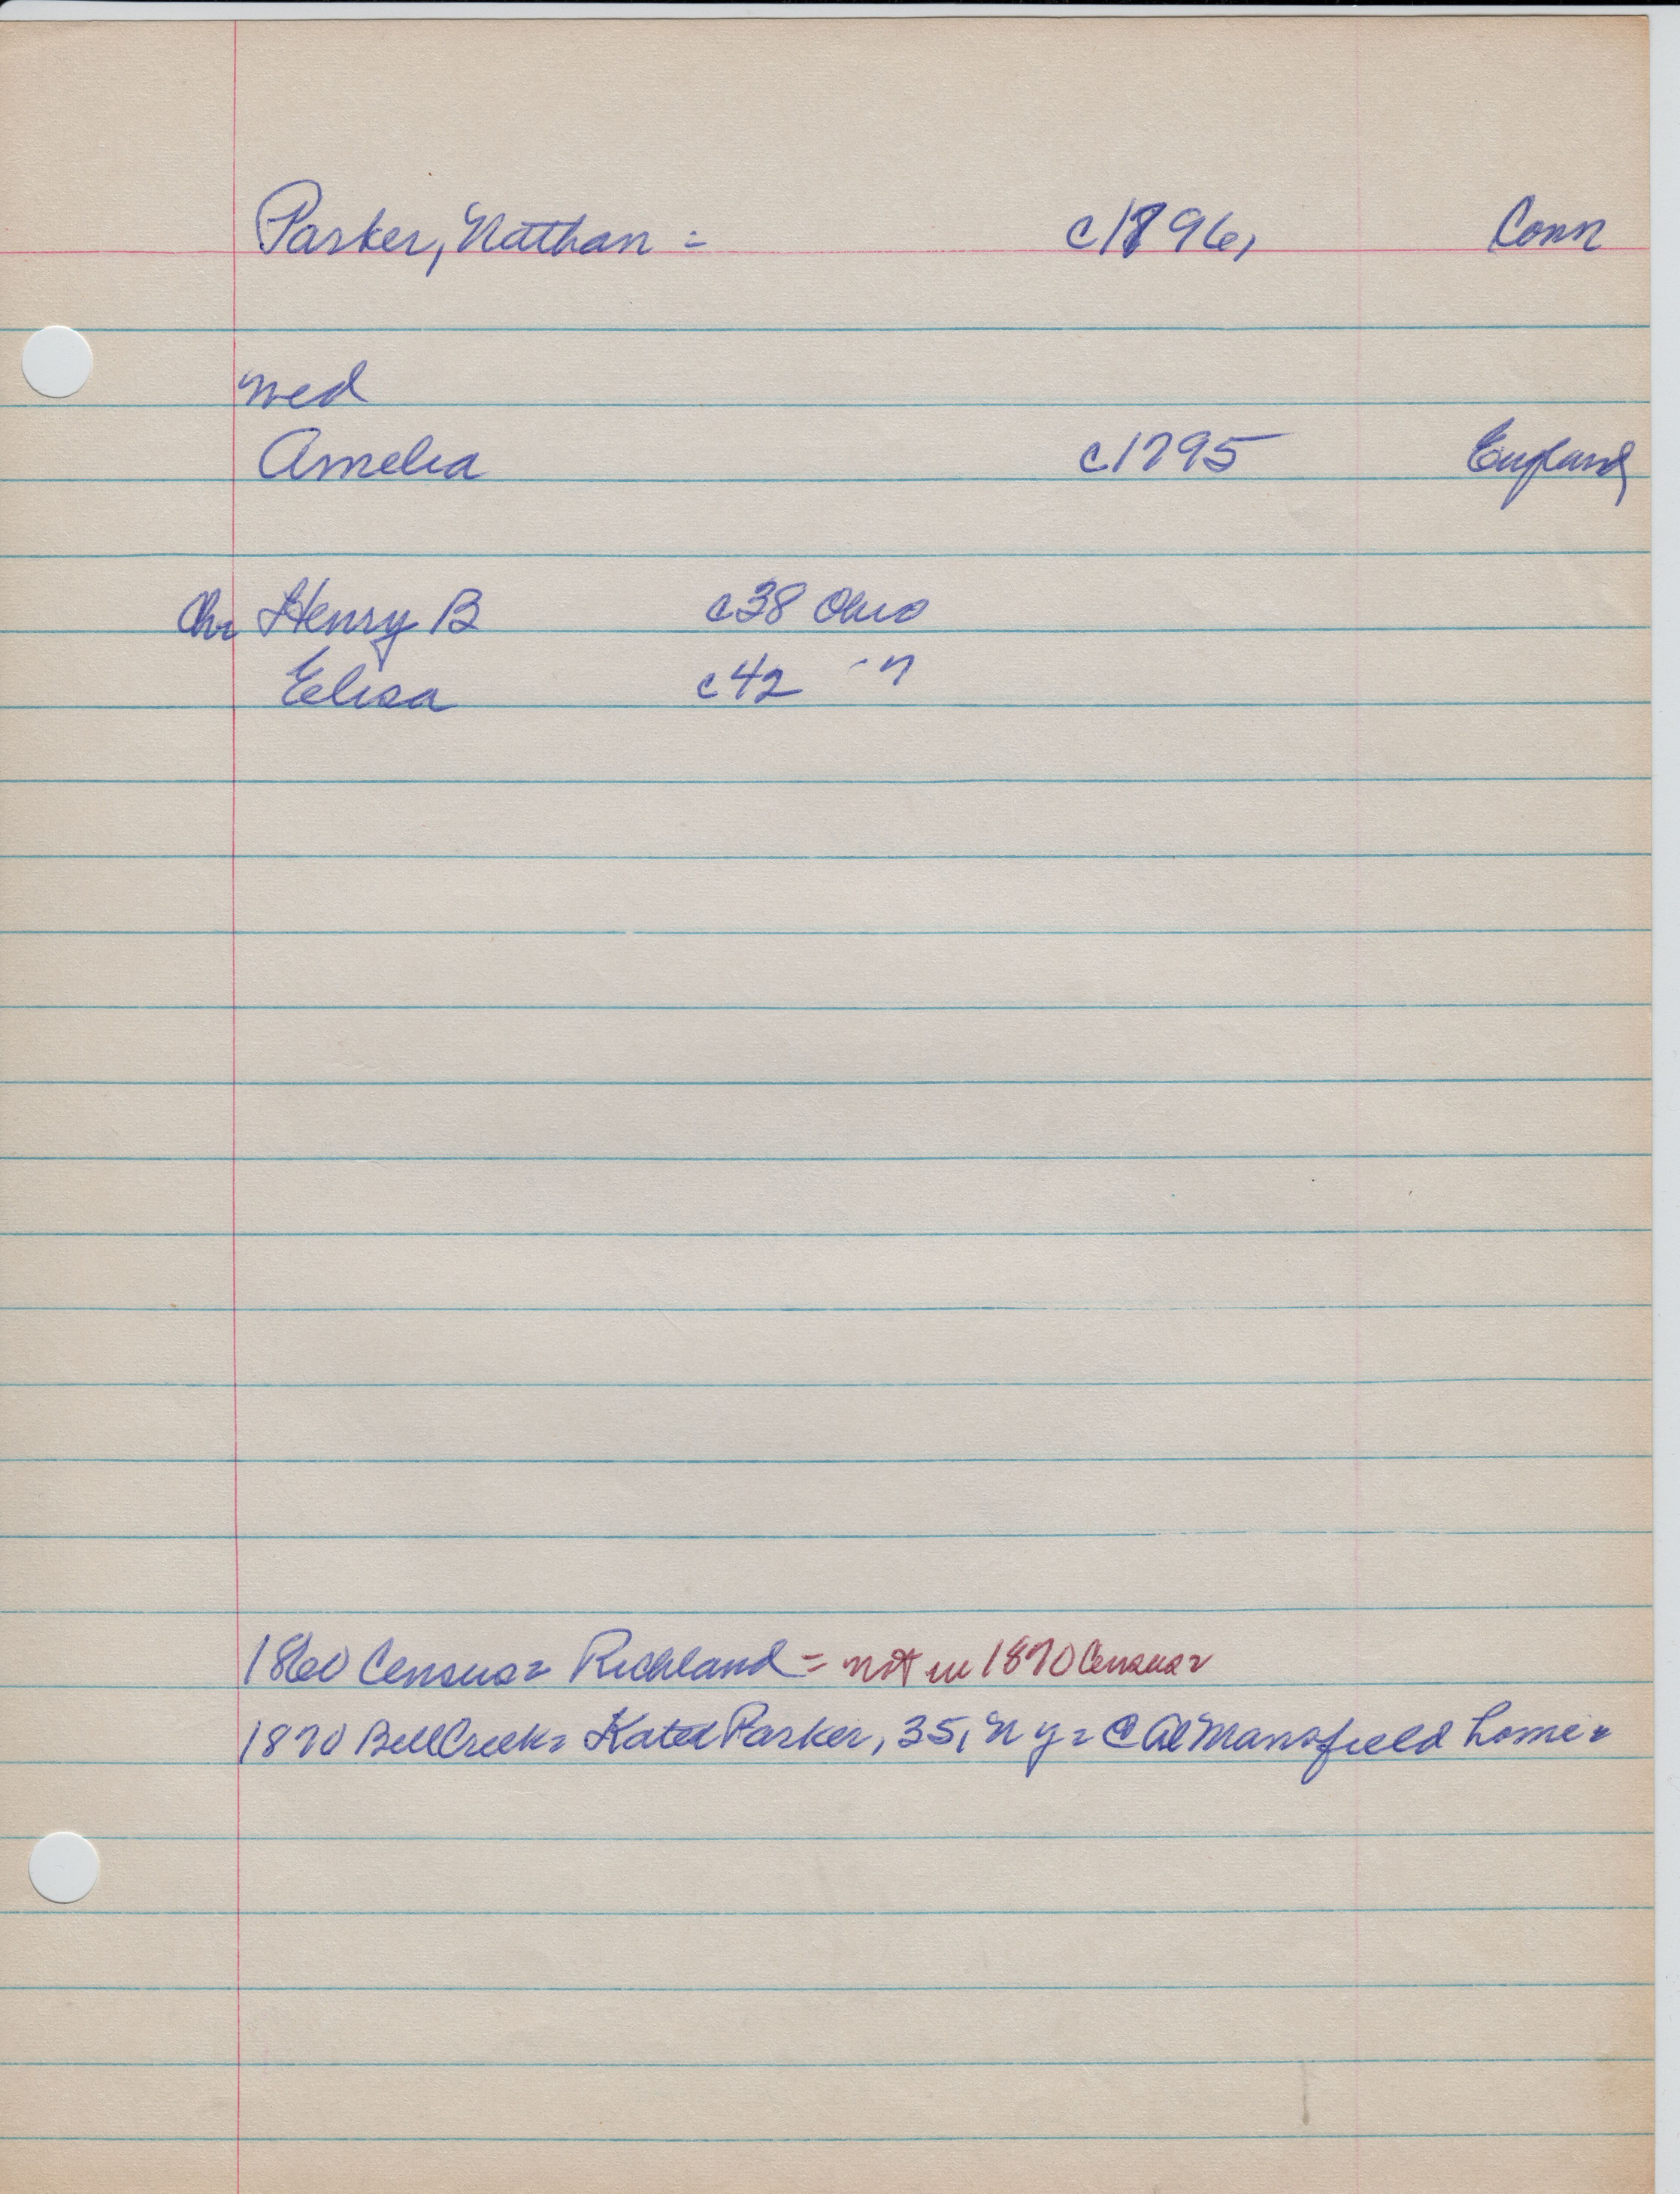 Parker, Nathan = c1796, Conn
med
Amelia c1795 England
Chr Henry B c38 Ohio
Elisa c42 - "
1860 Census = Richland = not in 1870 Census =
1870 Bell Creek = Parker, 35, N Y = Mansfield home =